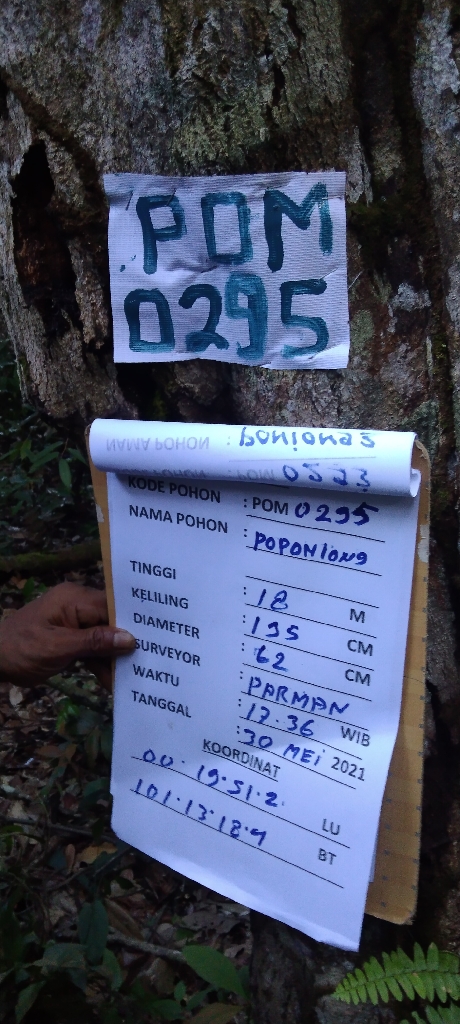 POM
0295
NAMA POHON :
KODE POHON : POM 0295
NAMA POHON : POPONIONG
TINGGI : 18 M
KELILING : 195 CM
DIAMETER : 62 CM
SURVEYOR : PARMAN
WAKTU : 17.36 WIB
TANGGAL : 30 MEI 2021
KOORDINAT
00. 19.51.2. LU
101.13.18.4 BT